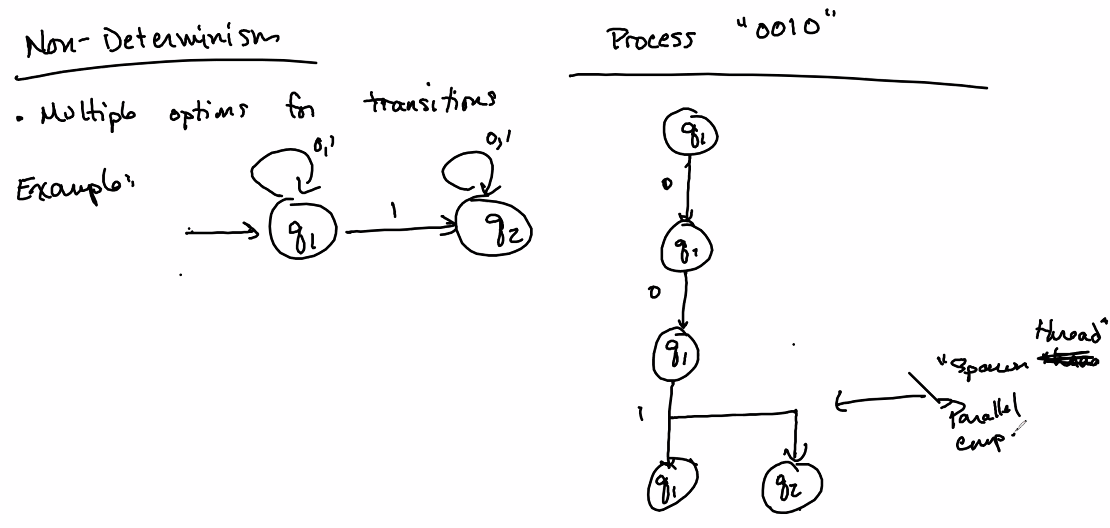 Non-Determinism
• Multiple options for transitions
Example:
0,1
0,1
q1
1
q2
Process "0010"
q1
0
q1
0
q1
1
q1
q2
"Spawn Thread"
Parallel
Comp.